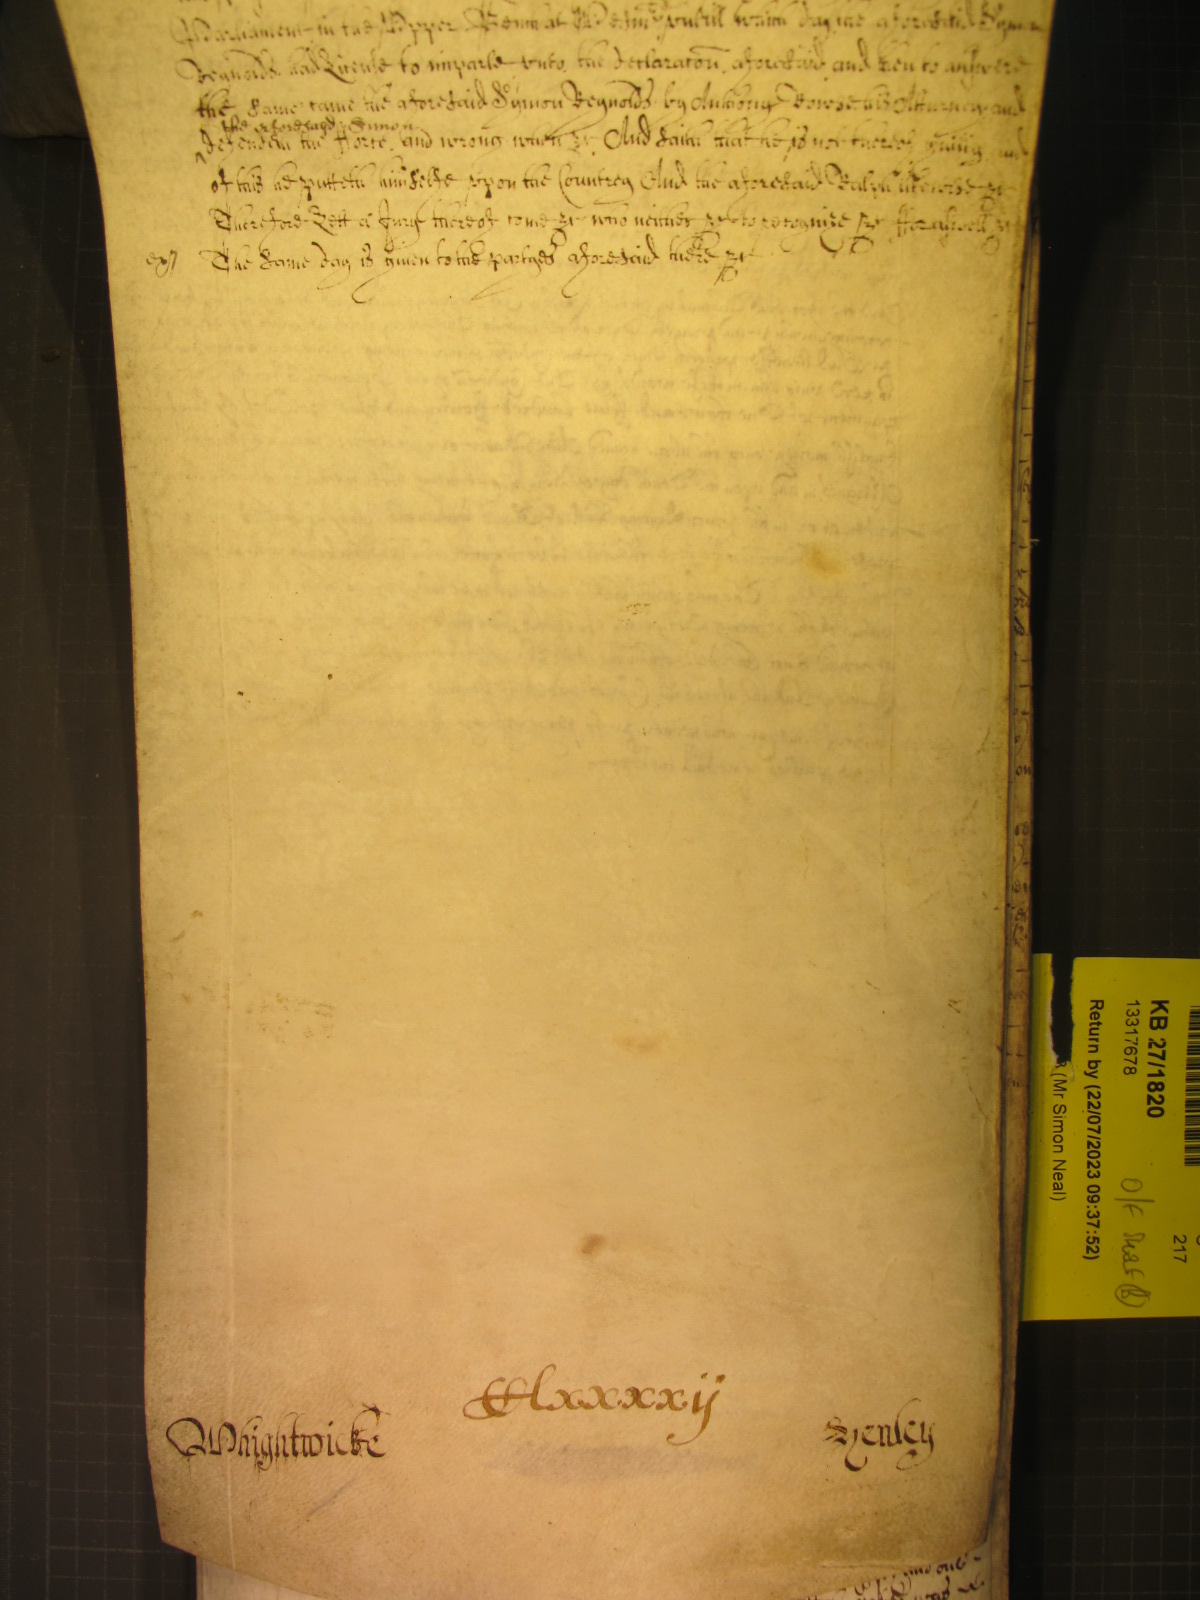 Parliament in the Upper Bench at Westmr untill which day the aforesaid Symon
Reynolds had License to imparle unto the declaraton aforesaid and then to answere
the same came the aforesaid Symon Reynolds by Anthony Rowse his Atturney and
the aforesayd Simon
defendeth the Force and wrong when &c And saith that he is not thereof guilty and
of this he putteth himselfe upon the Countrey And the aforesaid Ralph likewise &c
Therefore Lett a Jury thereof come &c who neither &c to recognize &c
The same day is given to the partyes aforesaid there &c
CClxxxxij
Whightwicke
Henley
KB 27/1820
13317678
Return by (22/07/2023 09:37:52)
(Mr Simon Neal)
217